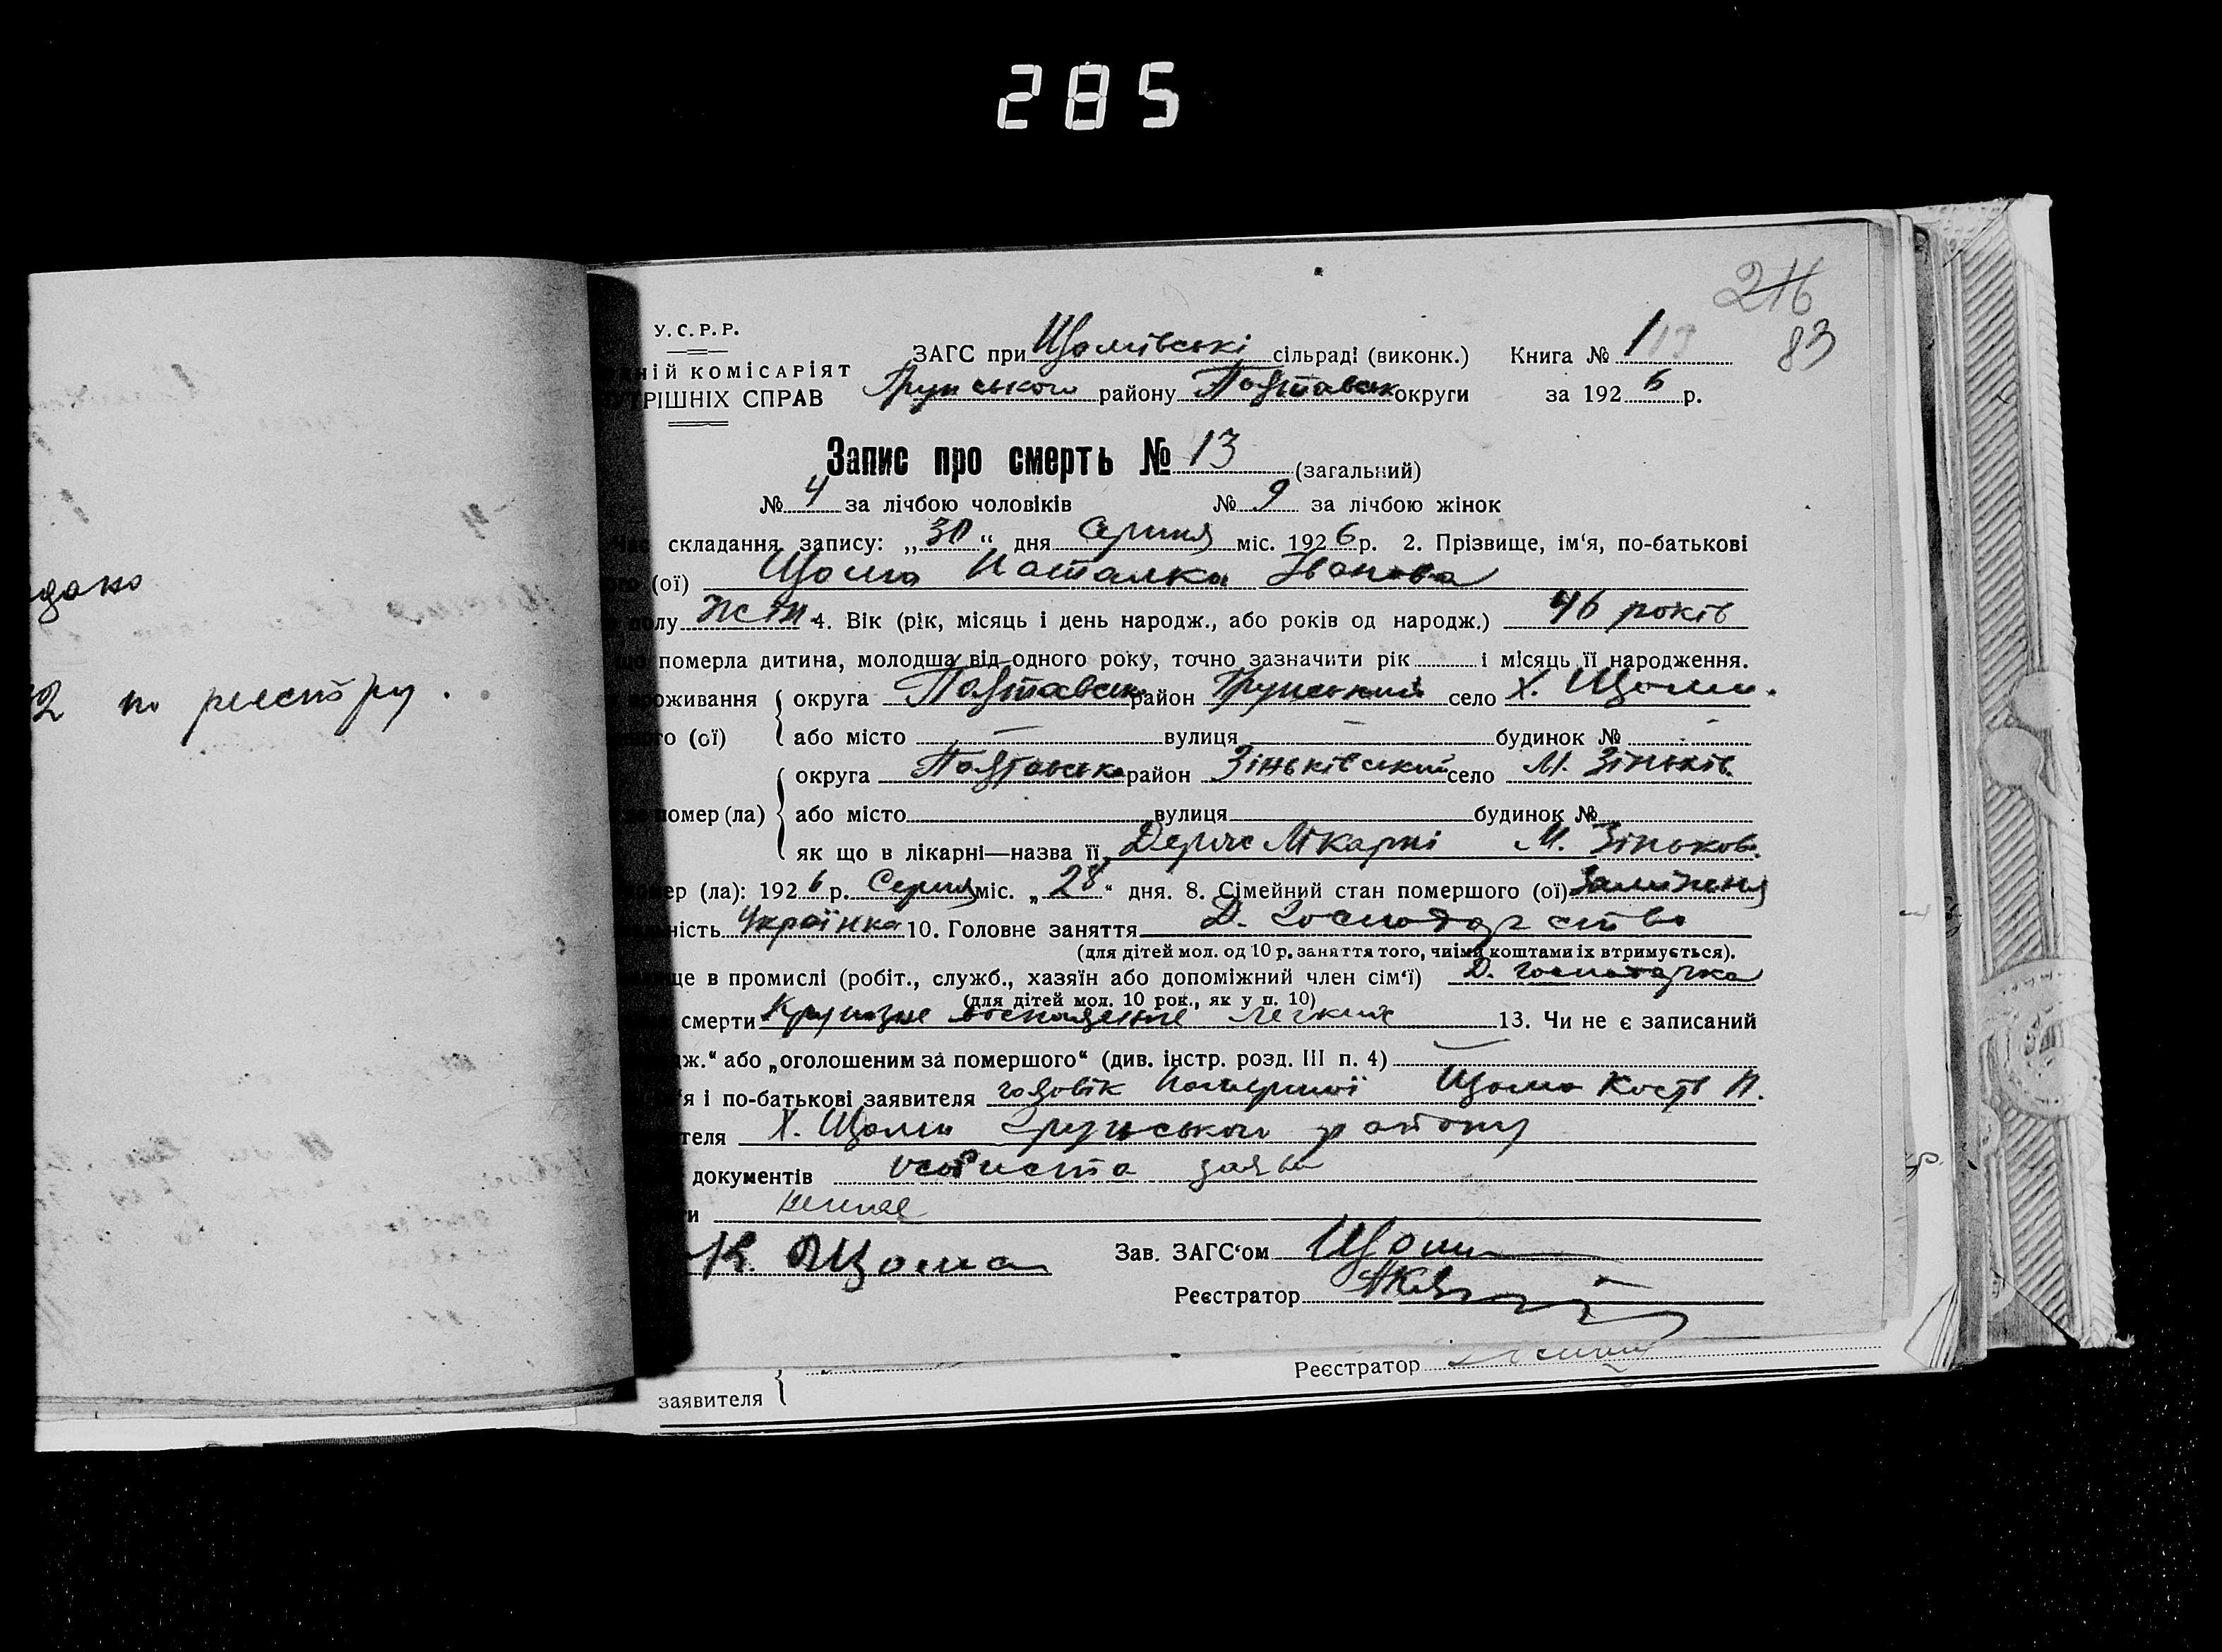 285
216
83
У.С.Р.Р.
ній комісаріят
рішніх справ
ЗАГС при Щомівські сільраді (виконк.) Книга № 1
Грунського району Полтавськ округи за 1926 р.
Запис про смерть № 13 (загальний)
№ 4 за лічбою чоловіків № 9 за лічбою жінок
складання запису: „30“ дня Серпня міс. 1926 р. 2. Прізвище, ім‘я, по-батькові
(ої) Щома Наталка Іванова
полу жін 4. Вік (рік, місяць і день народж., або років од народж.) 46 років
померла дитина, молодша від одного року, точно зазначити рік і місяць її народження.
оживання округа Полтавськ район Грунський село Х. Щоми.
го (ої) або місто — вулиця — будинок № -
округа Полтавська район Зіньківський село М. Зіньків.
помер (ла) або місто вулиця будинок №
як що в лікарні—назва її Держ Лікарні М. Зінькова.
ер (ла): 1926 р. Серпня міс. „28“ дня. 8. Сімейний стан помершого (ої) Заміжня
ність Українка 10. Головне заняття Д. Господарство
(для дітей мол. од 10 р. заняття того, чиїми коштами їх втримується).
ще в промислі (робіт., служб., хазяїн або допоміжний член сім‘ї) Д. господарка
(для дітей мол. 10 рок., як у п. 10)
смерти Крупозне воспаление легких 13. Чи не є записаний
дж.“ або „оголошеним за помершого“ (див. інстр. розд. III п. 4) —
‘я і по-батькові заявителя чоловік Помершої Щома Кость П.
теля Х. Щоми Грунського району
документів особиста заява
и немає
К. Щома Зав. ЗАГС‘ом Щома
Реєстратор
Реєстратор
заявителя
дано
2 по реестру.